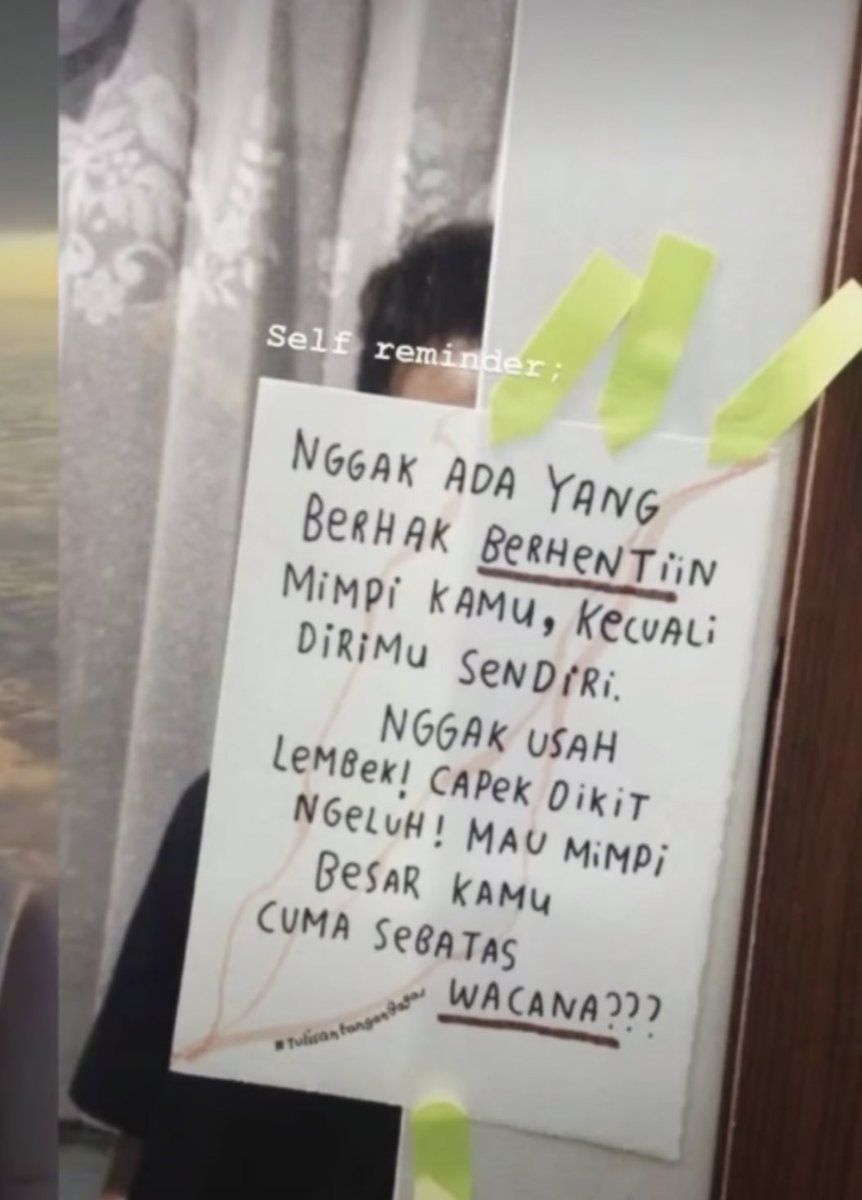 Self reminder;
NGGAK ADA YANG
BERHAK BERHENTIIN
MIMPI KAMU, KECUALI
DIRIMU SENDIRI.
NGGAK USAH
LEMBEK! CAPEK DIKIT
NGELUH! MAU MIMPI
BESAR KAMU
CUMA SEBATAS
WACANA???
#TulisantanganBagas